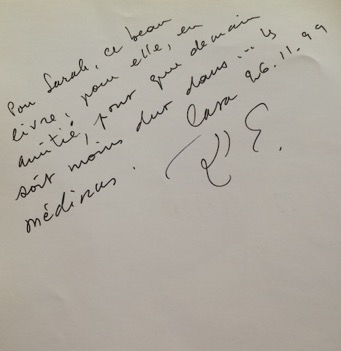 Pour Sarah, ce beau
livre, pour elle, en
amitié, pour que demain
soit moins dur dans les
médinas.
Casa 26.11.99